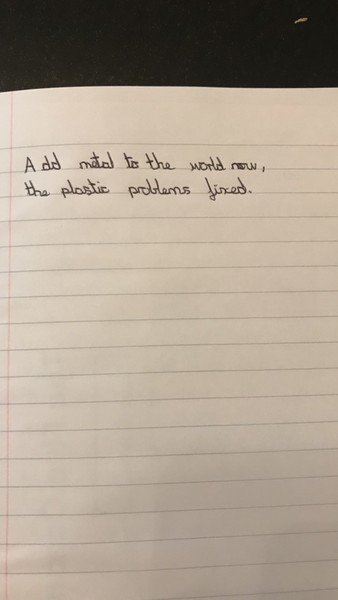 Add metal to the world now,
the plastic problems fixed.